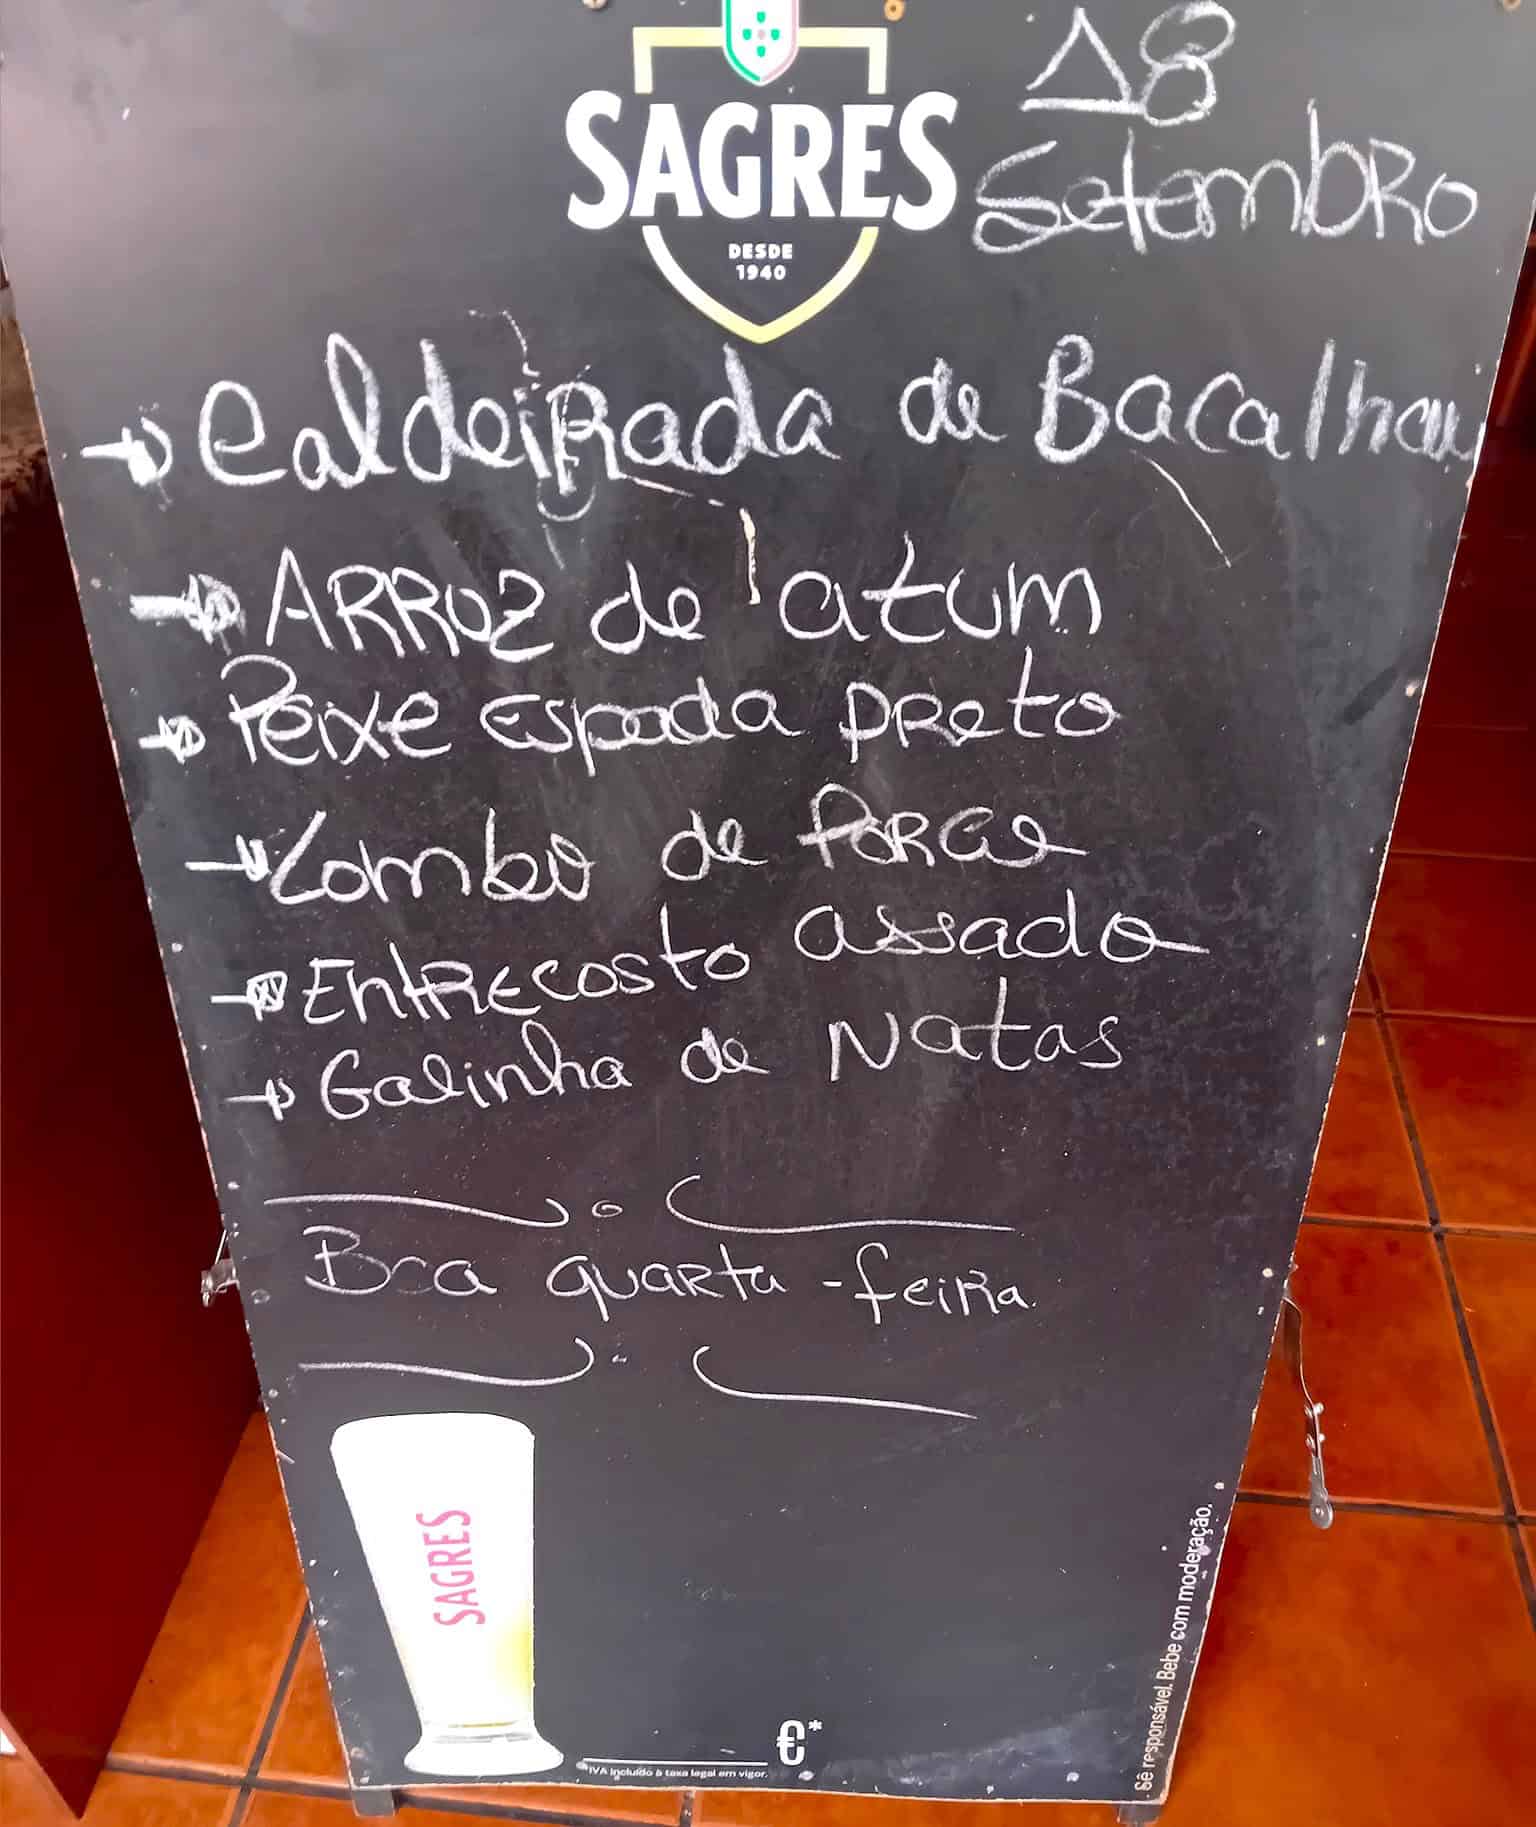 SAGRES
DESDE
1940
18
Setembro
Caldeirada de Bacalhau
ARROZ de atum
Peixe espada preto
Lombo de Porco
assado
Entrecosto
Galinha de Natas
Boa quarta-feira.
SAGRES
€*
*IVA incluído à taxa legal em vigor.
Sê responsável. Bebe com moderação.